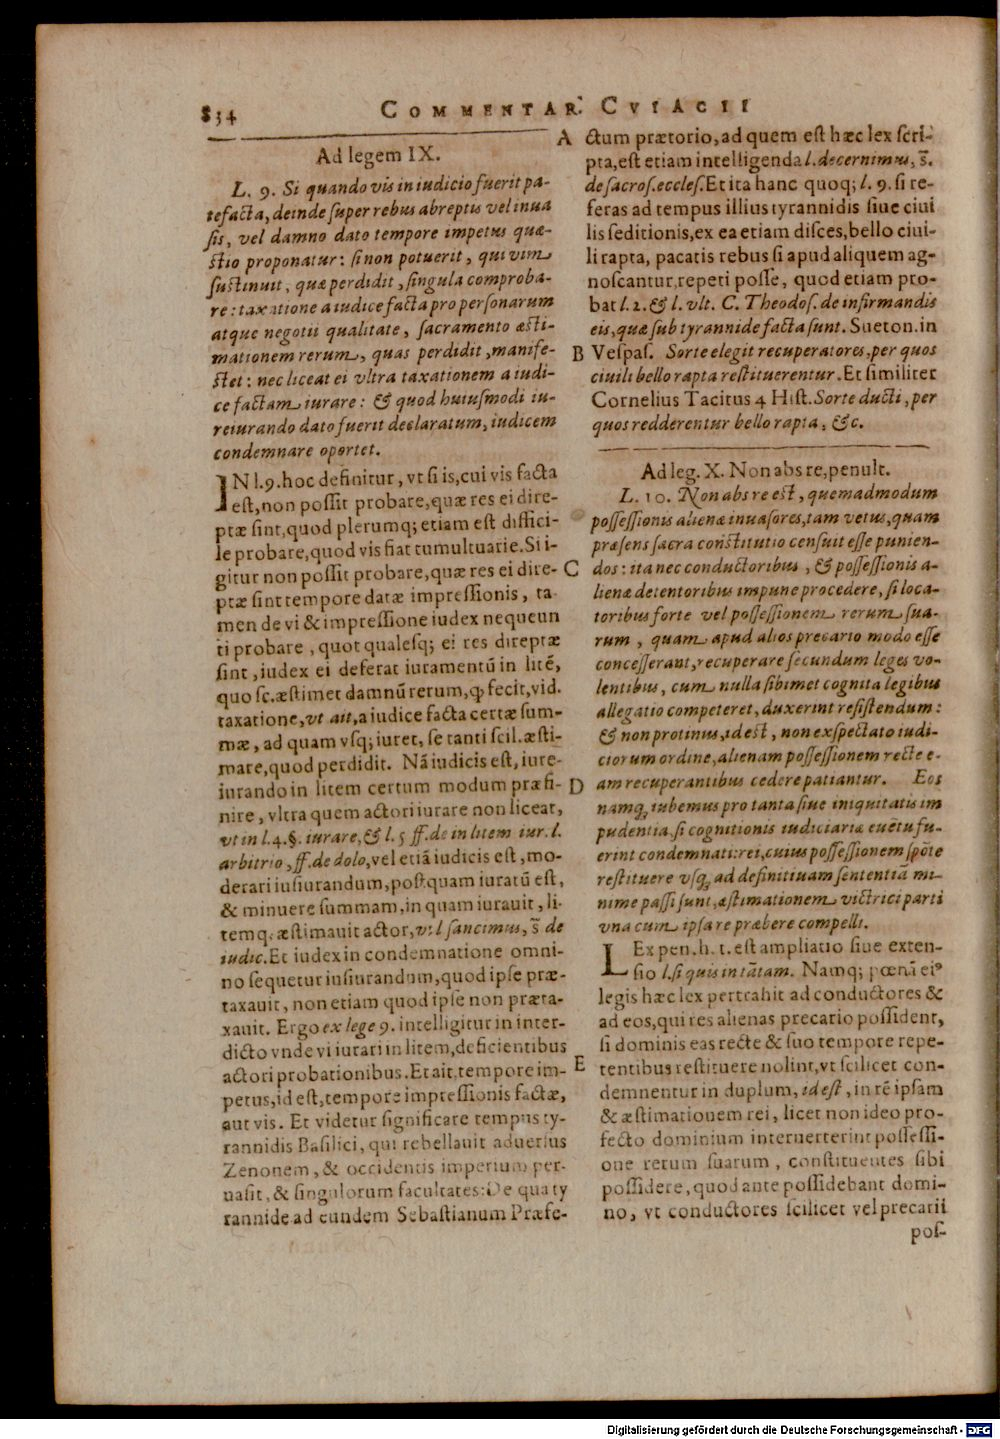 834
COMMENTAR. CVIACII
Ad legem IX.
L. 9. Si quando vis in iudicio fuerit pa-
tefacta, deinde super rebus abreptis vel inua
sis, vel damno dato tempore impetus quæ-
stio proponatur: si non potuerit, qui vim
sustinuit, quæ perdidit, singula comproba-
re: taxatione a iudice facta pro personarum
atque negotii qualitate, sacramento æsti-
mationem rerum, quas perdidit, manife-
stet: nec liceat ei vltra taxationem a iudi-
ce factam iurare: & quod huiusmodi iu-
reiurando dato fuerit declaratum, iudicem
condemnare oportet.
IN l.9. hoc definitur, vt si is, cui vis facta
est, non possit probare, quæ res ei dire-
ptæ sint, quod plerumq; etiam est diffici-
le probare, quod vis fiat tumultuarie. Si i-
gitur non possit probare, quæ res ei dire-
ptæ sint tempore datæ impressionis, ta
men de vi & impressione iudex nequeun
ti probare, quot qualesq; ei res direptæ
sint, iudex ei deferat iuramentū in litē,
quo sc. æstimet damnū rerum, ꝙ fecit, vid.
taxatione, vt ait, a iudice facta certæ sum-
mæ, ad quam vsq; iuret, se tanti scil. æsti-
mare, quod perdidit. Nā iudicis est, iure-
iurando in litem certum modum præfi-
nire, vltra quem actori iurare non liceat,
vt in l. 4. §. iurare, & l. 5 ff. de in litem iur. l.
arbitrio, ff. de dolo, vel etiā iudicis est, mo-
derari iusiurandum, postquam iuratū est,
& minuere summam, in quam iurauit, li-
temq. æstimauit actor, vt l sancimus, s̄ de
iudic. Et iudex in condemnatione omni-
no sequetur iusiurandum, quod ipse præ-
taxauit, non etiam quod ipse non præta-
xauit. Ergo ex lege 9. intelligitur in inter-
dicto vnde vi iurari in litem, deficientibus
actori probationibus. Et ait, tempore im-
petus, id est, tempore impressionis factæ,
aut vis. Et videtur significare tempus ty-
rannidis Basilici, qui rebellauit aduersus
Zenonem, & occidentis imperium per-
uasit, & singulorum facultates: De qua ty
rannide ad eundem Sebastianum Præfe-
A
B
C
D
E
ctum prætorio, ad quem est hæc lex scri-
pta, est etiam intelligenda l. decernimus, s̄.
de sacros. eccles. Et ita hanc quoq; l. 9. si re-
feras ad tempus illius tyrannidis siue ciui
lis seditionis, ex ea etiam disces, bello ciui-
li rapta, pacatis rebus si apud aliquem ag-
noscantur, repeti posse, quod etiam pro-
bat l. 2. & l. vlt. C. Theodos. de infirmandis
eis, quæ sub tyrannide facta sunt. Sueton. in
Vespas. Sorte elegit recuperatores, per quos
ciuili bello rapta restituerentur. Et similiter
Cornelius Tacitus 4 Hist. Sorte ducti, per
quos redderentur bello rapta, &c.
Ad leg. X. Non abs re, penult.
L. 10. Non abs re est, quemadmodum
possessionis alienæ inuasores, tam vetus, quam
præsens sacra constitutio censuit esse punien-
dos: ita nec conductoribus, & possessionis a-
lienæ detentoribus impune procedere, si loca-
toribus forte vel possessionem rerum sua-
rum, quam apud alios precario modo esse
concesserant, recuperare secundum leges vo-
lentibus, cum nulla sibimet cognita legibus
allegatio competeret, duxerint resistendum:
& non protinus, id est, non exspectato iudi-
ciorum ordine, alienam possessionem recte e-
am recuperantibus cedere patiantur. Eos
namq; iubemus pro tanta siue iniquitatis im
pudentia, si cognitionis iudiciariæ euētu fu-
erint condemnati: rei, cuius possessionem spōte
restituere vsq; ad definitiuam sententiā mi-
nime passi sunt, æstimationem victrici parti
vna cum ipsa re præbere compelli.
LEx pen. h. t. est ampliatio siue exten-
sio l. si quis in tātam. Namq; pœnā eiꝰ
legis hæc lex pertrahit ad conductores &
ad eos, qui res alienas precario possident,
si dominis eas recte & suo tempore repe-
tentibus restituere nolint, vt scilicet con-
demnentur in duplum, id est, in rē ipsam
& æstimationem rei, licet non ideo pro-
fecto dominium interuerterint possessi-
one rerum suarum, constituentes sibi
possidere, quod ante possidebant domi-
no, vt conductores scilicet vel precarii
pos-
Digitalisierung gefördert durch die Deutsche Forschungsgemeinschaft - DFG